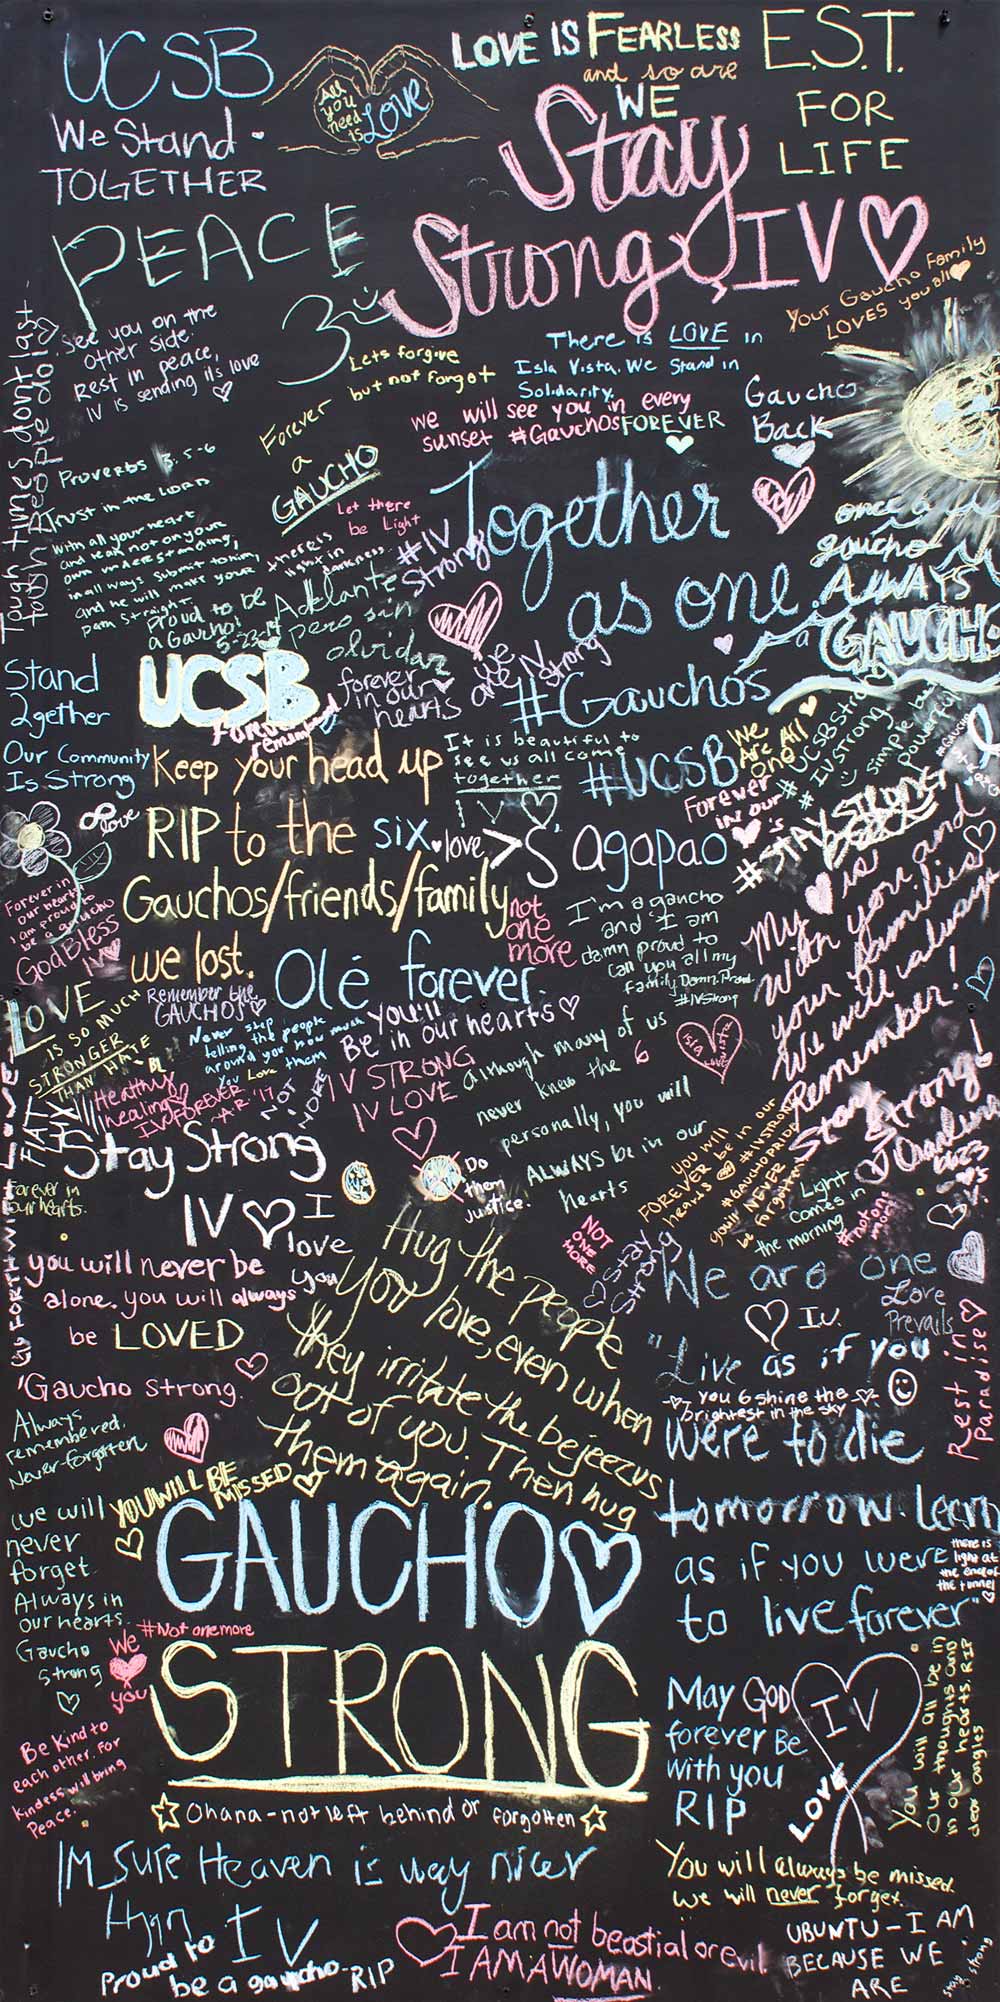 UCSB
We Stand
TOGETHER
All
you
need
is LOVE
LOVE IS FEARLESS
and so are
WE
E.S.T.
FOR
LIFE
Stay
Strong, IV
PEACE
Your Gaucho Family
LOVES you all
Tough times don't last
tough people do!
See you on the
other side.
Rest in peace,
IV is sending its love
Lets forgive
but not forget
There is LOVE in
Isla Vista. We Stand in
Solidarity.
we will see you in every
sunset #Gauchos FOREVER
Gaucho
Back
Forever
a
GAUCHO
Proverbs 3:5-6
Trust in the LORD
with all your heart
and lean not on your
own understanding,
in all ways submit to him,
and he will make your
path straight.
Let there
be Light
there is
light in
darkness
#IV
Strong
Together
as one
once a
gaucho
ALWAYS
a
GAUCHO
Proud to be
a Gaucho!
5-23-14
Adelante
pero sin
olvidar
Stand
2gether
UCSB
Forever
remembered
forever
in our
hearts
we
are IV
strong
#Gauchos
Our Community
Is Strong
Keep your head up
It is beautiful to
see us all come
together
IV
#UCSB
We
Are All
One
#UCSBStrong
#IVStrong
simple but
powerful
Forever
in our
's
#STAYSTRONG
love
RIP to the six
love > S
agapao
Gauchos/friends/family
we lost.
not
one
more
I'm a gaucho
and I am
damn proud to
call you all my
family. Damn. Proud.
#IVStrong
My is
with you and
your families
We will always
Remember!
Forever in
our hearts
I am proud to
be a gaucho
God Bless
IV
LOVE
IS SO MUCH
STRONGER
THAN HATE
Remember the
GAUCHOS
Olé forever.
you'll
Be in our hearts
Never stop
telling the people
around you how much
You Love them
Healthy
healing
IV FOREVER
AR '17
NOT
1
MORE
IV STRONG
IV LOVE
Although many of us
never knew the 6
personally, you will
ALWAYS be in our
hearts
Isla
Vista
FIAT
LUX
GO FORTH WITH LOVE
Stay Strong
IV
I
love
you
Forever in
our hearts.
Do
them
Justice.
you will
FOREVER be in our
hearts
#IVSTRONG
#GAUCHOPRIDE
you'll NEVER
be forgotten
Light
comes in
the morning
#not one
more
Stay
Strong!
NOT
ONE
MORE
Stay
Strong
We are one
IV.
Love
Prevails
you will never be
alone. you will always
be LOVED
Hug the people
You love, even when
they irritate the bejeezus
out of you. Then hug
them again.
"Live as if you
you 6 shine the
brightest in the sky
were to die
tomorrow. learn
as if you were
to live forever"
there is
light at
the end of
the tunnel
Rest in
Paradise
'Gaucho Strong.
Always
remembered.
Never forgotten
YOU WILL BE
MISSED
we will
never
forget.
Always in
our hearts.
Gaucho
Strong
GAUCHO
STRONG
#Not one more
We
you
Be kind to
each other. For
kindess will bring
Peace.
May God
forever Be
with you
RIP
IV
LOVE
You will all be in
our thoughts and
in our hearts. RIP
dear angles
Ohana - not left behind or forgotten
I'M Sure Heaven is way nicer
than IV
You will always be missed.
We will never forget.
Proud to
be a gaucho
RIP
I am not beastial or evil
I AM A WOMAN.
UBUNTU - I AM
BECAUSE WE
ARE
stay strong